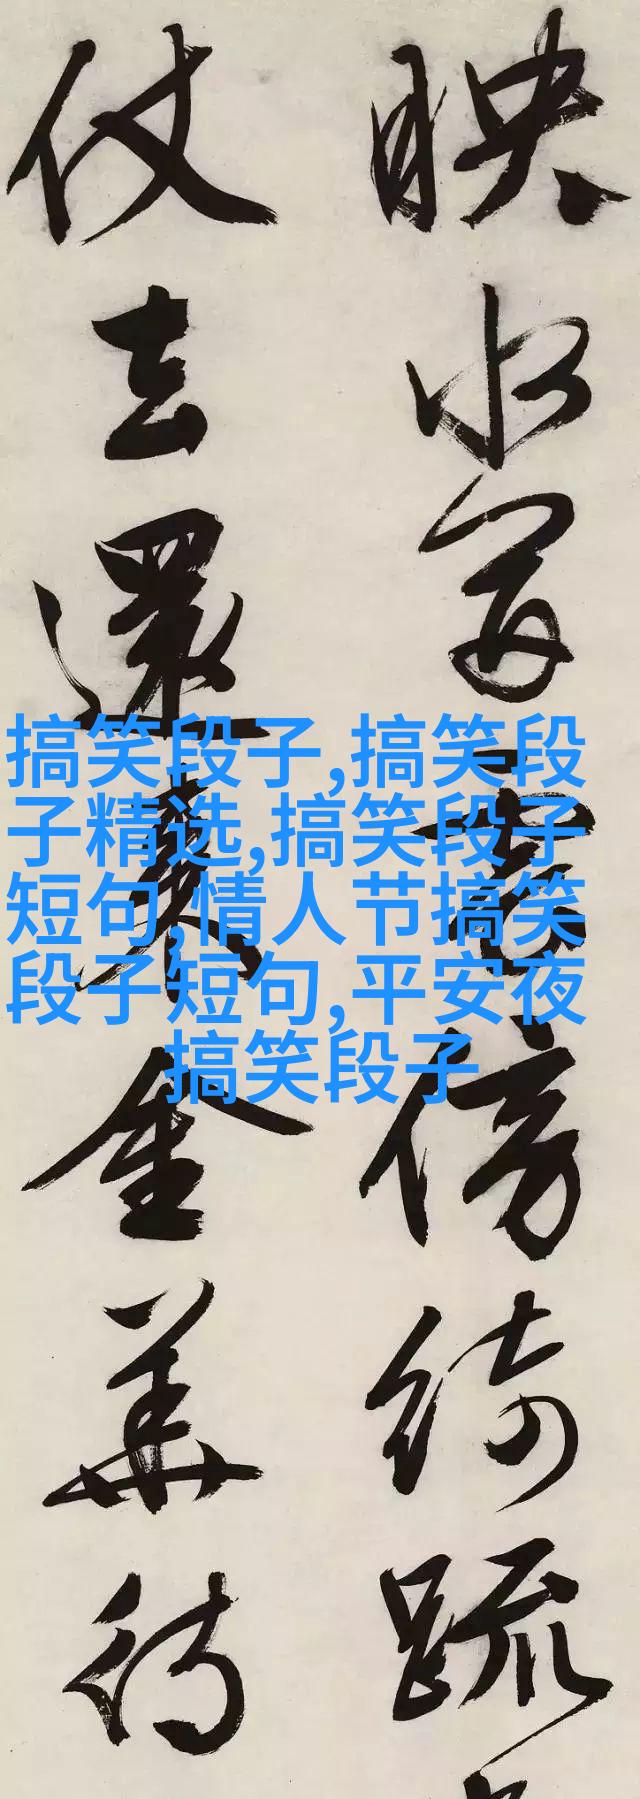 映水傍綺疏
仗去還来金華侍
搞笑段子,搞笑段
子精选,搞笑段子
短句,情人节搞笑
段子短句,平安夜
搞笑段子